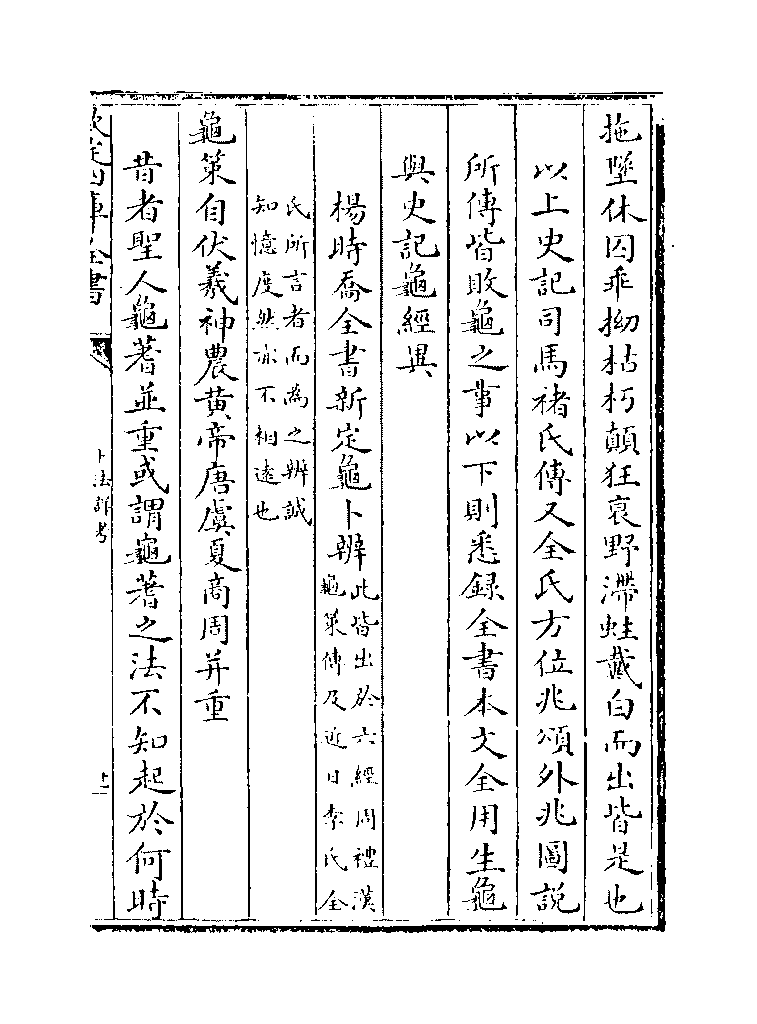 拖墜休囚乖拗枯朽顛狂哀野滯蛀戴白而出皆是也
以上史記司馬褚氏傳又全氏方位兆頌外兆圖説
所傳皆敗龜之事以下則悉録全書本文全用生龜
與史記龜經異
楊時喬全書新定龜卜辨
此皆出於六經周禮漢
龜策傳及近日李氏全
氏所言者而為之辨誠
知憶度然亦不相逺也
龜策自伏羲神農黄帝唐虞夏商周并重
昔者聖人龜蓍並重或謂龜蓍之法不知起於何時
欽定四庫全書
卜法詳考